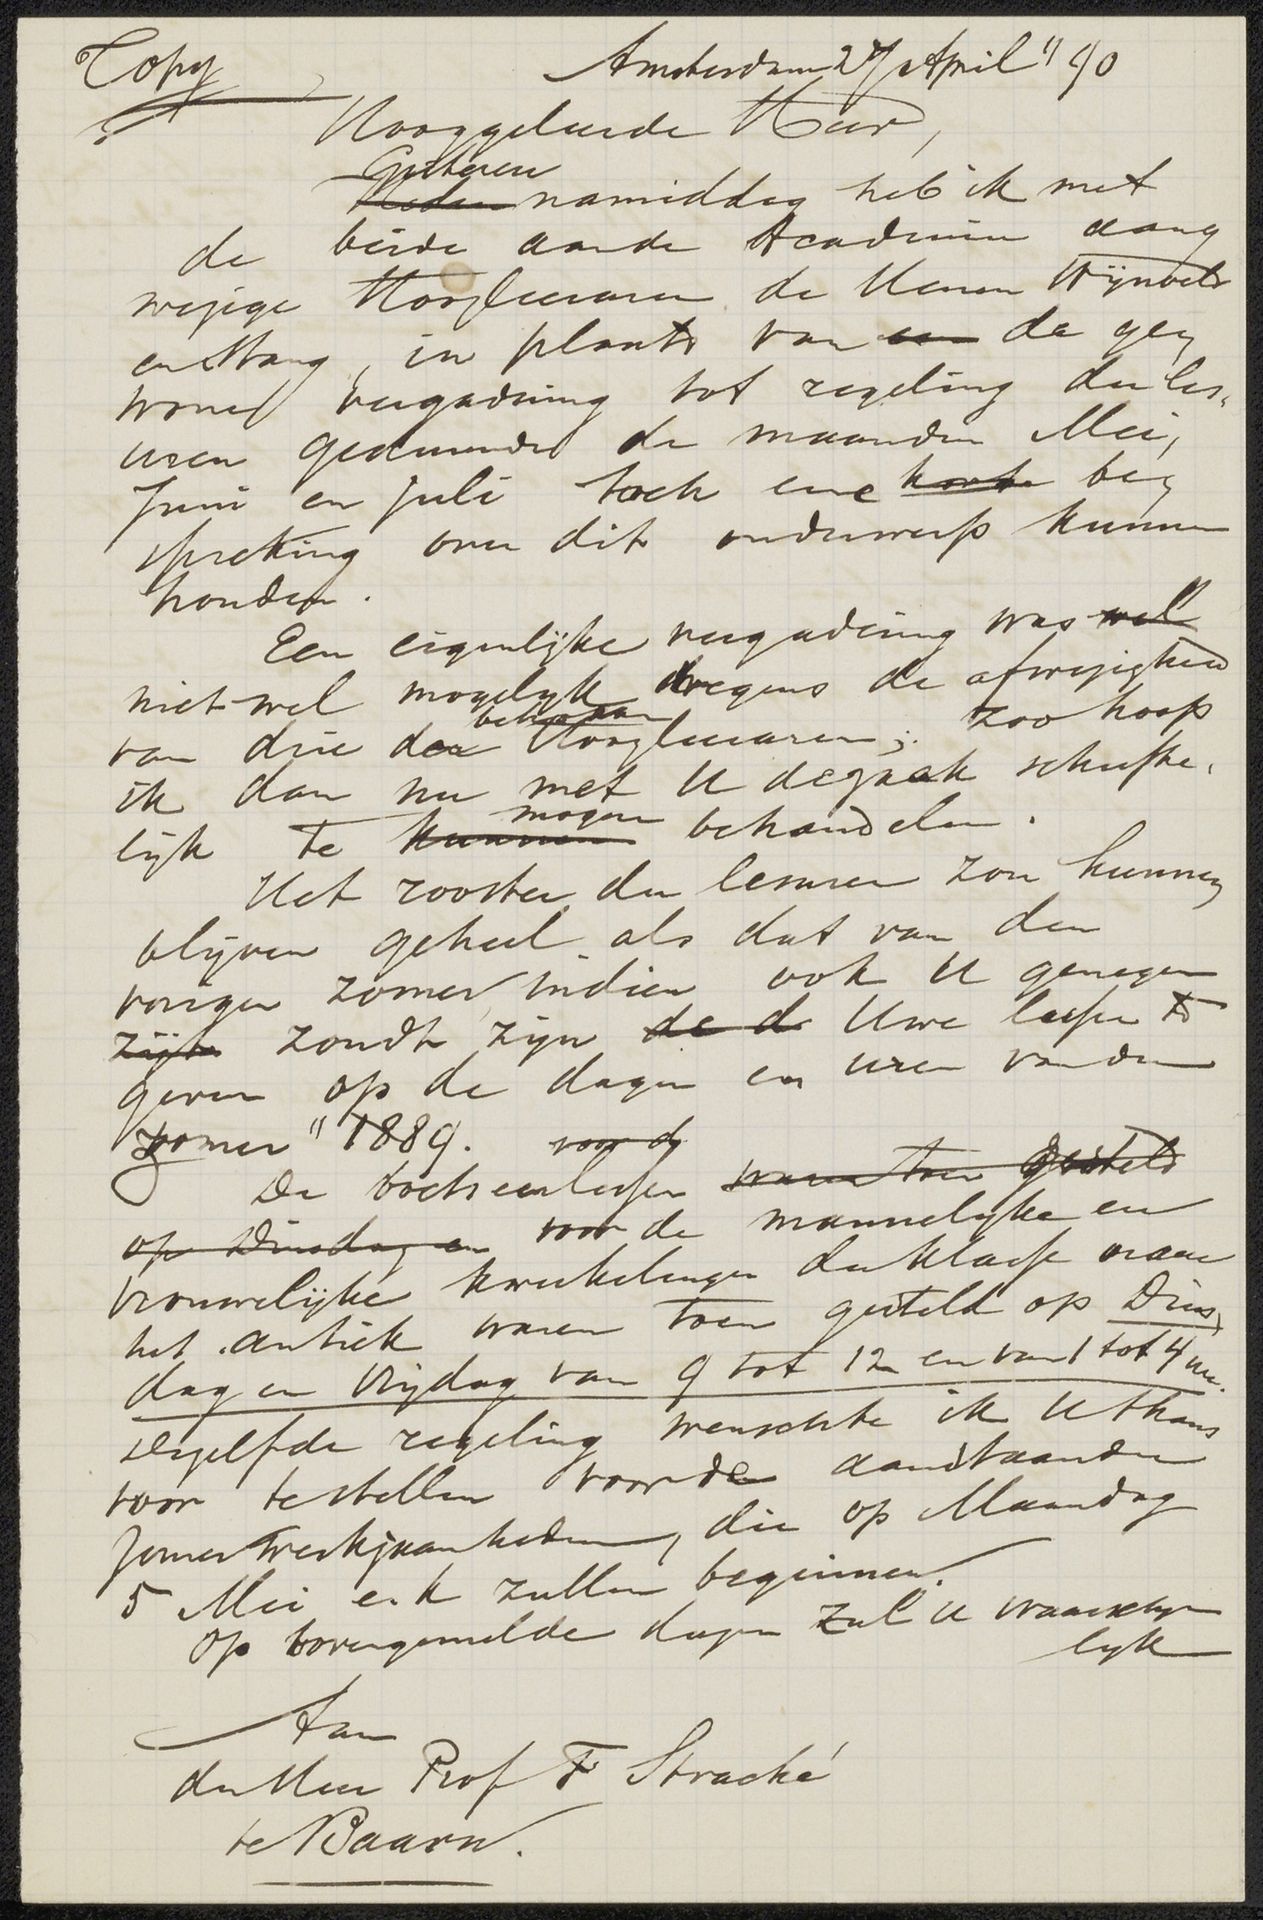 Copy
Amsterdam 27 April "90
Hooggeleerde Heer,
Gisteren
Heden namiddag heb ik met
de beide aan de Academie aang
wezige Hoogleeraren de Heeren Wijnveld
en Stang, in plaats van een de gey
wone vergadering tot regeling der les,
uren gedurende de maanden Mei,
Juni en Juli toch eene korte bey
spreking over dit onderwerp kunnen
houden.
Een eigenlijke vergadering was wel
niet wel mogelyk wegens de afwezigheid
van drie der Hoogleeraren; zoo hoop
ik dan nu met U de zaak schrifte,
mogen
lijk te kunnen behandelen.
Het rooster der lesuren zou kunney
blijven geheel als dat van den
vorigen zomer, indien ook U genegen
zijn zoudt zijn de d Uwe lessen te
geven op de dagen en uren van den
zomer "1889. voor dy
De boetseerlessen waren toen gesteld
op Dinsdag en voor de mannelyke en
vrouwelijke kweekelingen der klasse naar
het antiek waren toen gesteld op Dins,
dag en Vrijdag van 9 tot 12 en van 1 tot 4 ure.
Dezelfde regeling wenschte ik U thans
voor te stellen voor de aanstaande
zomerwerkzaamheden, die op Maandag
5 Mei e.k zullen beginnen.
Op bovengemelde dagen zal U waarschyn
lyk
Aan
den Heer Prof F Stracké
te Baarn.